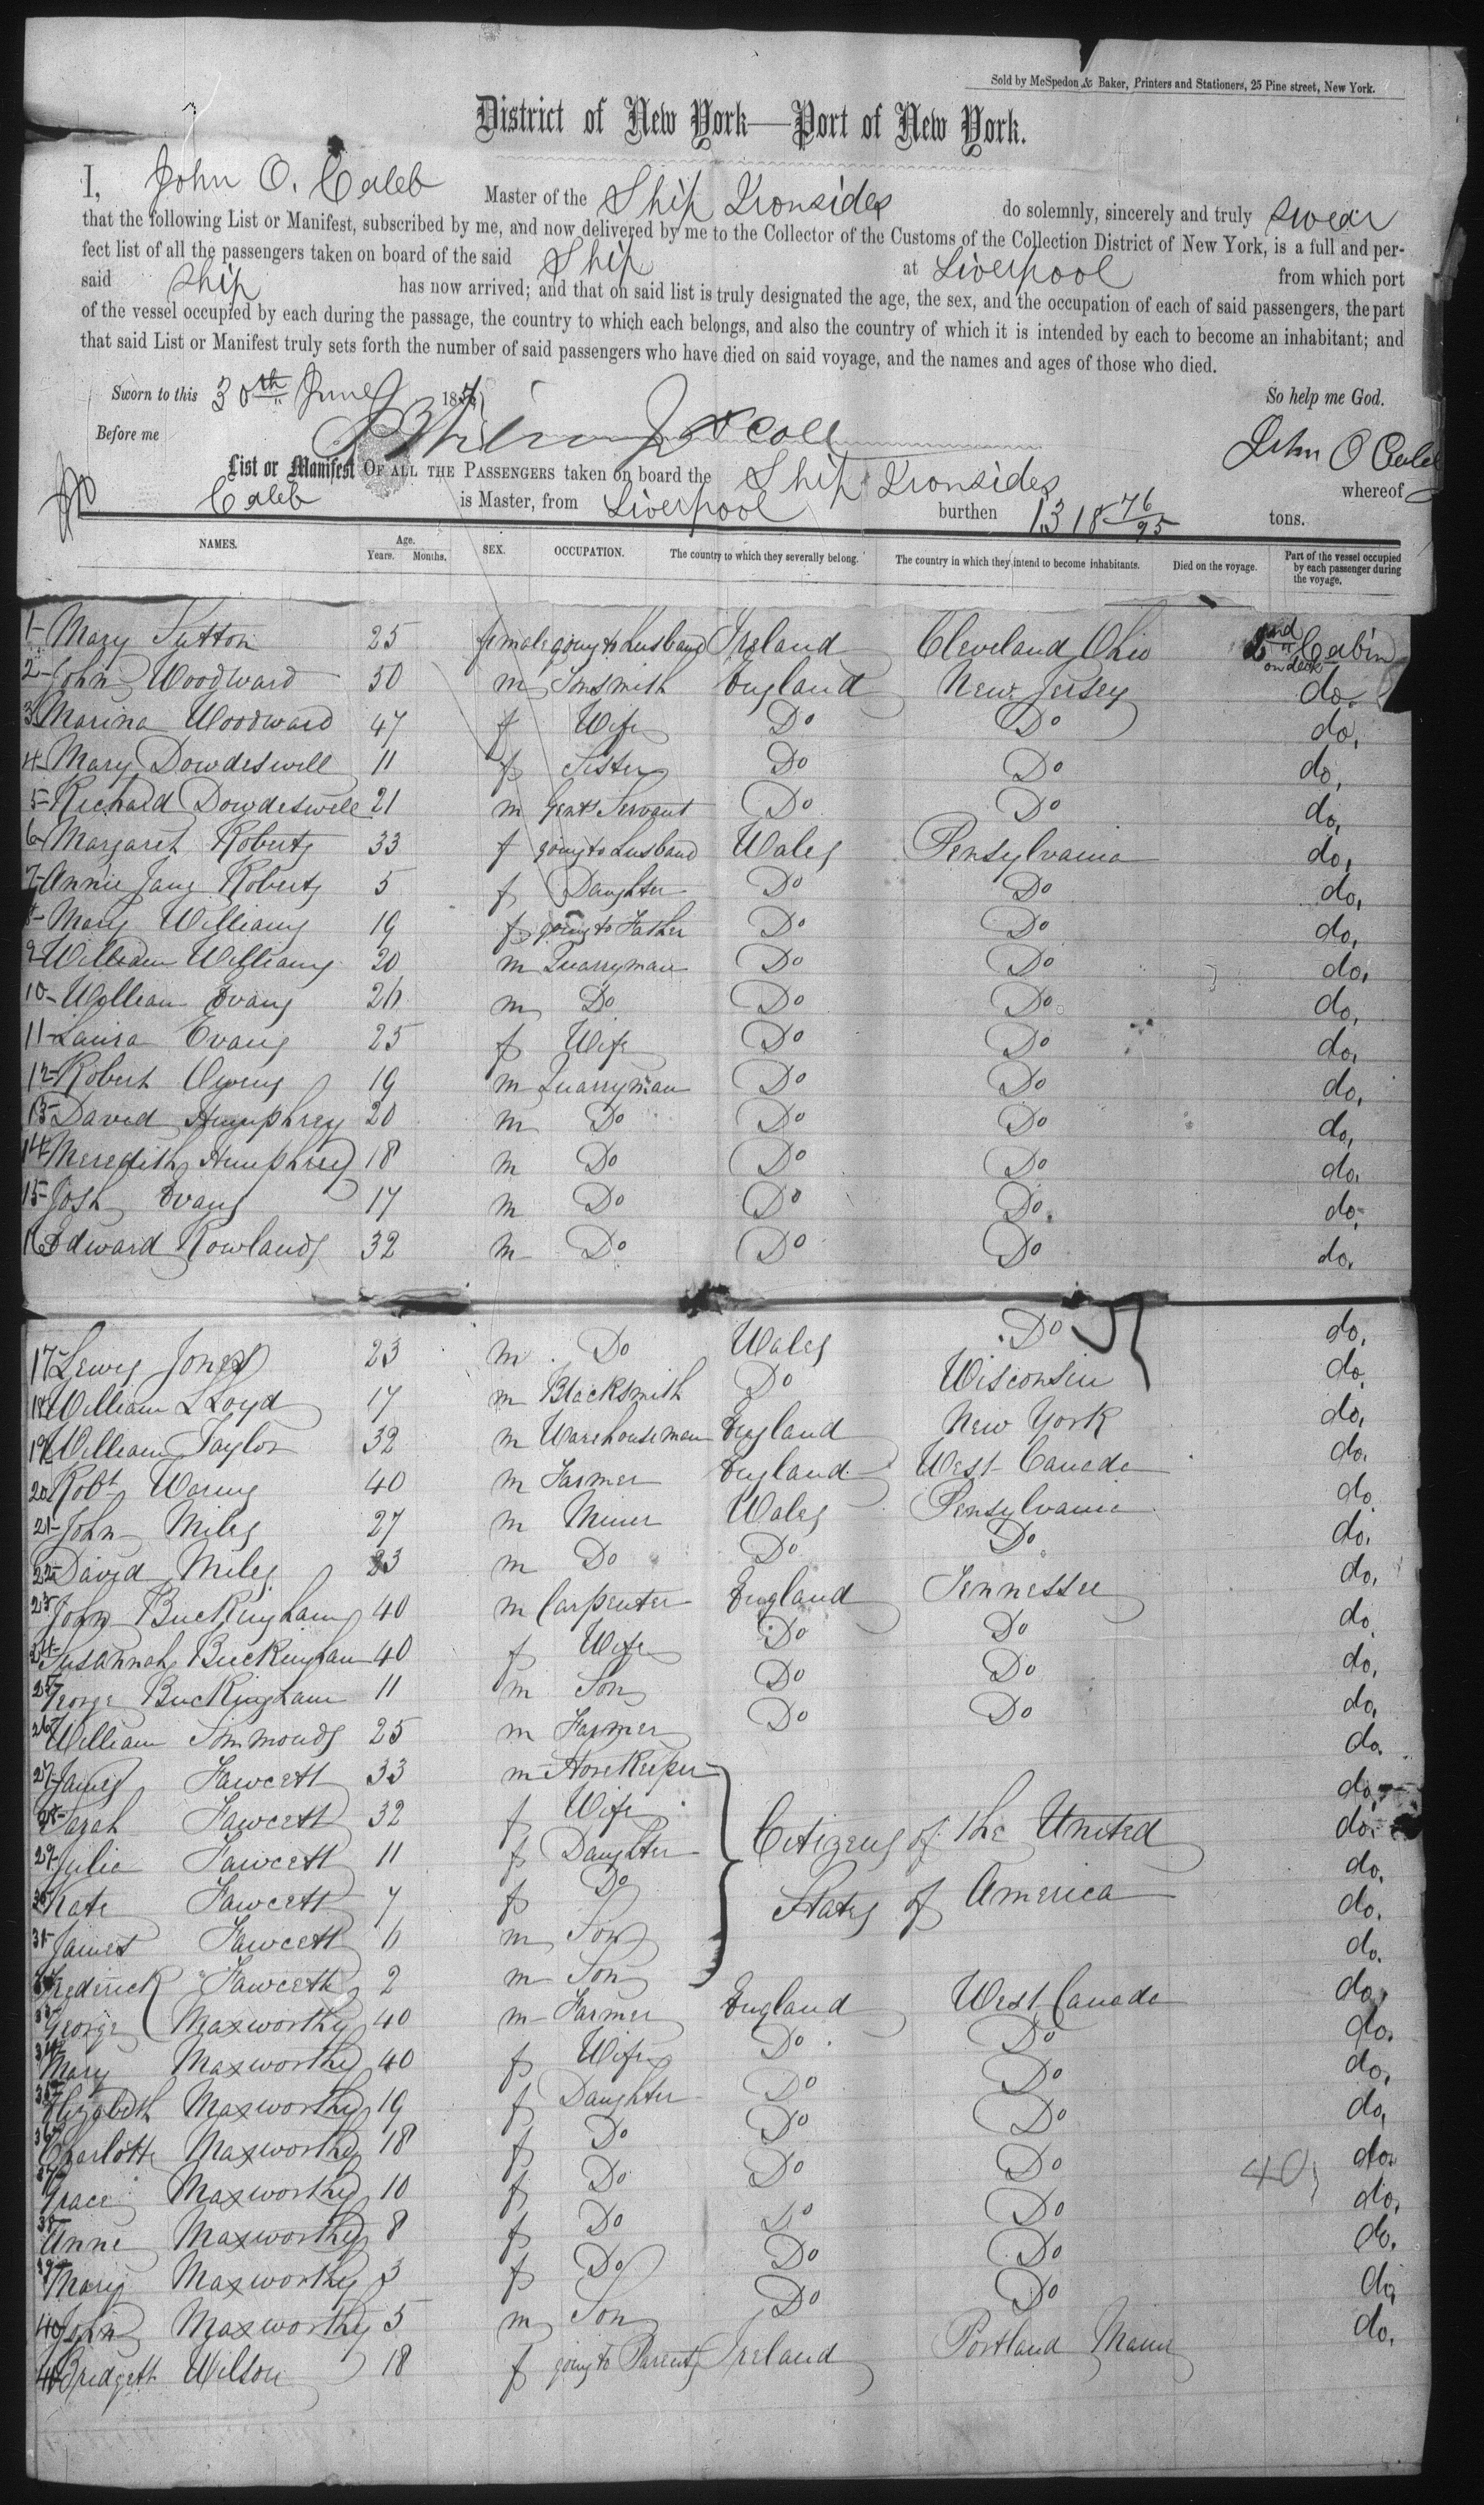 Sold by McSpedon & Baker, Printers and Stationers, 25 Pine street, New York.
District of New York—Port of New York.
I, John O. Caleb Master of the Ship Ironsides do solemnly, sincerely and truly swear
that the following List or Manifest, subscribed by me, and now delivered by me to the Collector of the Customs of the Collection District of New York, is a full and per-
fect list of all the passengers taken on board of the said Ship at Liverpool from which port
said Ship has now arrived; and that on said list is truly designated the age, the sex, and the occupation of each of said passengers, the part
of the vessel occupied by each during the passage, the country to which each belongs, and also the country of which it is intended by each to become an inhabitant; and
that said List or Manifest truly sets forth the number of said passengers who have died on said voyage, and the names and ages of those who died.
Sworn to this 30th June 185 So help me God.
Before me John O Caleb
List or Manifest OF ALL THE PASSENGERS taken on board the Ship Ironsides whereof
Caleb is Master, from Liverpool burthen 1318 76/95 tons.
NAMES. Age. Years. Months. SEX. OCCUPATION. The country to which they severally belong. The country in which they intend to become inhabitants. Died on the voyage. Part of the vessel occupied by each passenger during the voyage.
1- Mary Sutton 25 female going to husband Ireland Cleveland Ohio 2nd Cabin on deck
2- John Woodward 50 m Tinsmith England New Jersey do.
3 Marina Woodward 47 f Wife Do Do do.
4- Mary Dowdeswell 11 f Sister Do Do do.
5- Richard Dowdeswell 21 m Gent's Servant Do Do do.
6- Margaret Roberts 33 f going to husband Wales Pensylvania do.
7- Annie Jane Roberts 5 f Daughter Do Do do.
8- Mary Williams 19 f going to Father Do Do do.
9- William Williams 20 m Quarryman Do Do do.
10- William Evans 26 m Do Do Do do.
11- Laura Evans 25 f Wife Do Do do.
12- Robert Owens 19 m Quarryman Do Do do.
13- David Humphrey 20 m Do Do Do do.
14 Meredith Humphrey 18 m Do Do Do do.
15- Josh Evans 17 m Do Do Do do.
16 Edward Rowlands 32 m Do Do Do do.
17- Lewis Jones 23 m Do Wales Do do.
18 William LLoyd 17 m Blacksmith Do Wisconsin do.
19 William Taylor 32 m Warehouseman England New York do.
20 Robt Waring 40 m Farmer England West Canada do.
21- John Miles 27 m Miner Wales Pensylvania do.
22- David Miles 23 m Do Do Do do.
23- John Buckingham 40 m Carpenter England Tennessee do.
24- Susannah Buckingham 40 f Wife Do Do do.
25- George Buckingham 11 m Son Do Do do.
26- William Simmonds 25 m Farmer Do Do do.
27- James Fawcett 33 m Storekeeper do.
28- Sarah Fawcett 32 f Wife do.
29- Julia Fawcett 11 f Daughter Citizens of the United do.
30 Kate Fawcett 7 f Do States of America do.
31- James Fawcett 6 m Son do.
32 Frederick Fawcett 2 m Son do.
33- George Maxworthy 40 m Farmer England West Canada do.
34 Mary Maxworthy 40 f Wife Do Do do.
35 Elizabeth Maxworthy 19 f Daughter Do Do do.
36 Charlotte Maxworthy 18 f Do Do Do do.
37 Grace Maxworthy 10 f Do Do Do 40 do.
38 Anne Maxworthy 8 f Do Do Do do.
39 Mary Maxworthy 3 f Do Do Do do.
40 John Maxworthy 5 m Son Do Do do.
41 Bridgett Wilson 18 f going to Parents Ireland Portland Maine do.